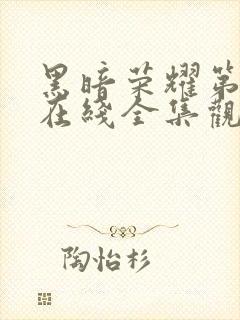 黑暗荣耀第
在綫全集觀
陶怡杉